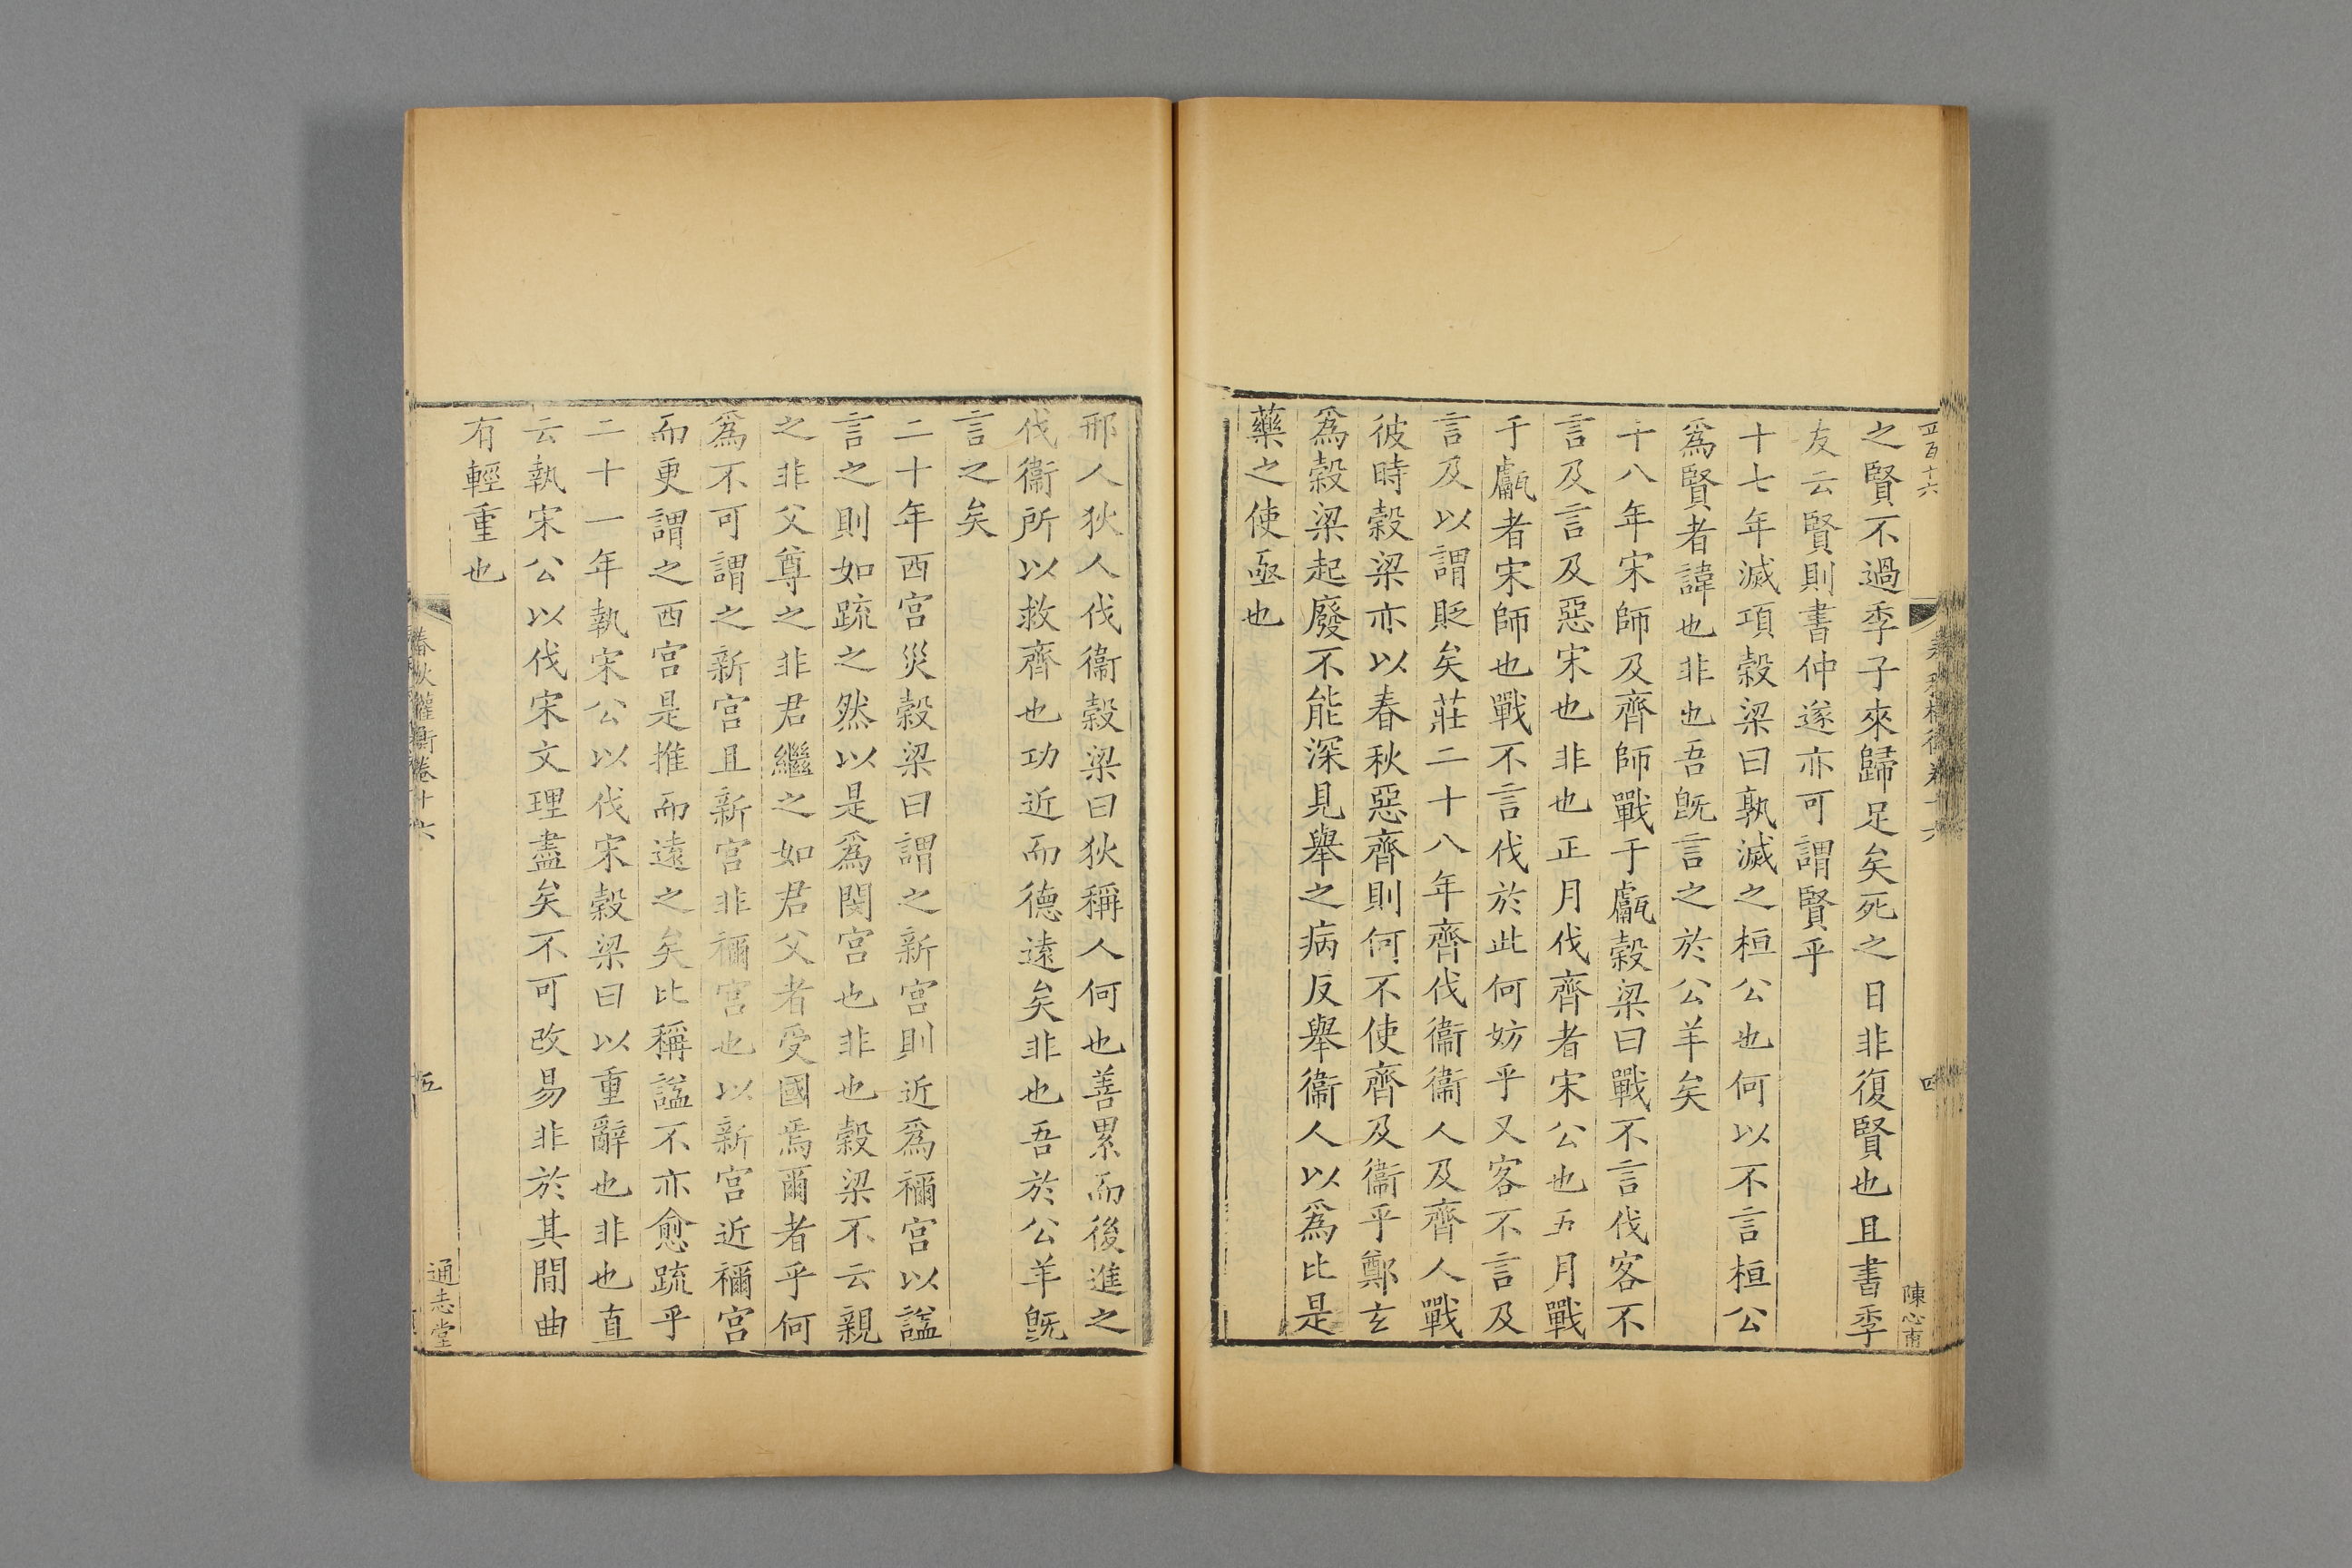 正百十六
四
陳心甫
之賢不過季子來歸足矣死之日非復賢也且書季
友云賢則書仲遂亦可謂賢乎
十七年滅項穀梁曰孰滅之桓公也何以不言桓公
爲賢者諱也非也吾旣言之於公羊矣
十八年宋師及齊師戰于甗穀梁曰戰不言伐客不
言及言及惡宋也非也正月伐齊者宋公也五月戰
于甗者宋師也戰不言伐於此何妨乎又客不言及
言及以謂貶矣莊二十八年齊伐衞衞人及齊人戰
彼時穀梁亦以春秋惡齊則何不使齊及衞乎鄭玄
爲穀梁起廢不能深見舉之病反舉衞人以爲比是
藥之使亟也
邢人狄人伐衞穀梁曰狄稱人何也善累而後進之
伐衞所以救齊也功近而德遠矣非也吾於公羊旣
言之矣
二十年西宮災穀梁曰謂之新宮則近爲禰宮以諡
言之則如疏之然以是爲閔宮也非也穀梁不云親
之非父尊之非君繼之如君父者受國焉爾者乎何
爲不可謂之新宮且新宮非禰宮也以新宮近禰宮
而更謂之西宮是推而遠之矣比稱諡不亦愈疏乎
二十一年執宋公以伐宋穀梁曰以重辭也非也直
云執宋公以伐宋文理盡矣不可改易非於其間曲
有輕重也
春秋權衡卷十六
五
通志堂